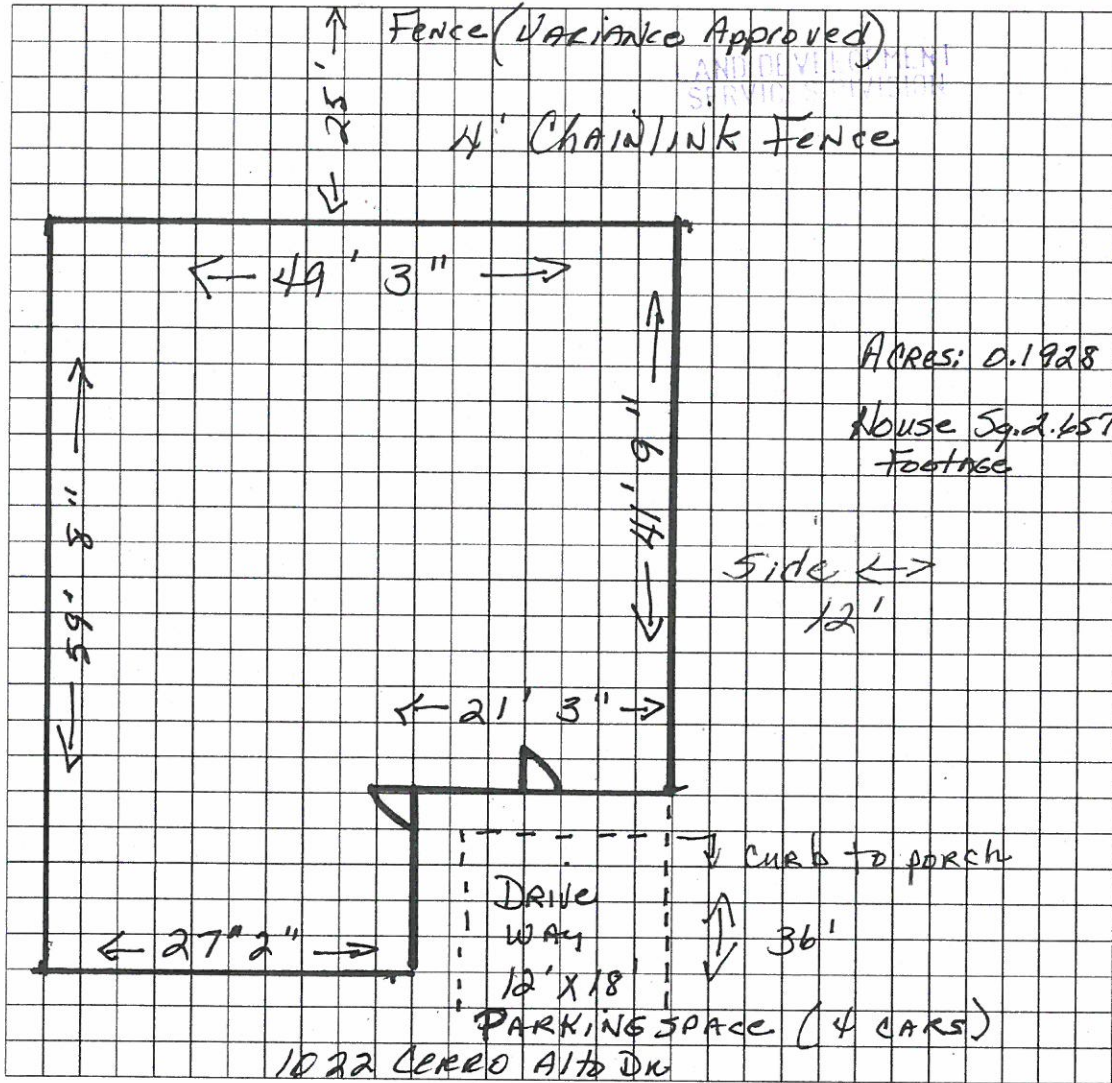 Fence (Variance Approved)
LAND DEVELOPMENT
SERVICES DIVISION
25'
4' Chainlink Fence
49' 3"
Acres: 0.1928
House Sq. 2.657
Footage
59' 8"
41' 9"
Side
12'
21' 3"
curb to porch
36'
Drive
way
12' x 18'
27" 2"
Parking Space (4 cars)
1022 Cerro Alto Dr